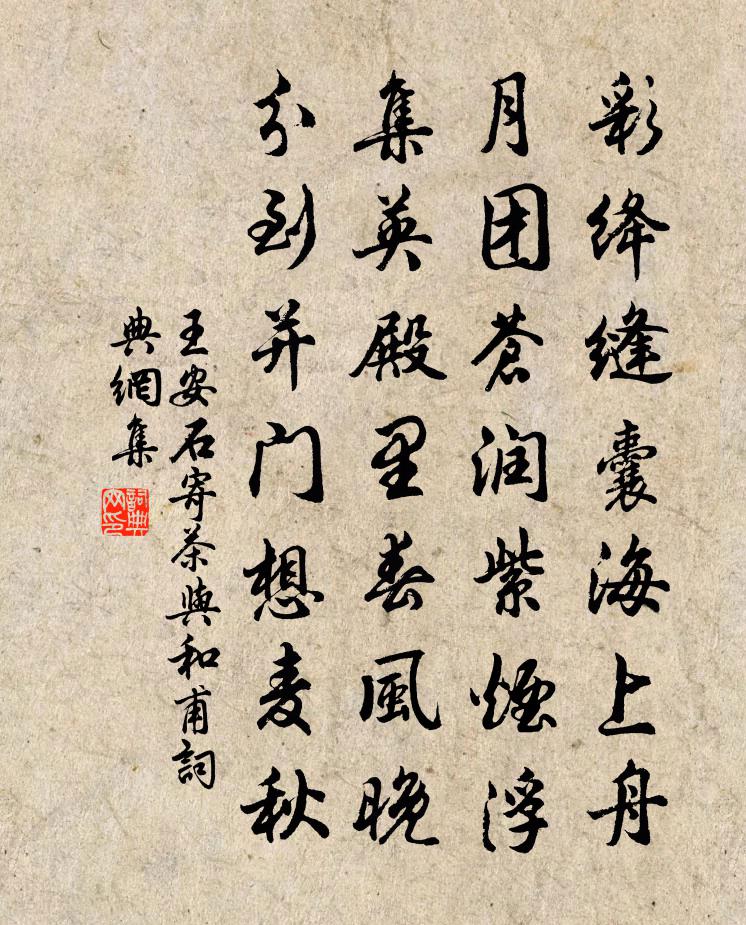 彩绛缝囊海上舟
月团苍润紫煙浮
集英殿里春風晚
分到并门想麦秋
王安石寄茶與和甫詞
典網集
詞典
网印